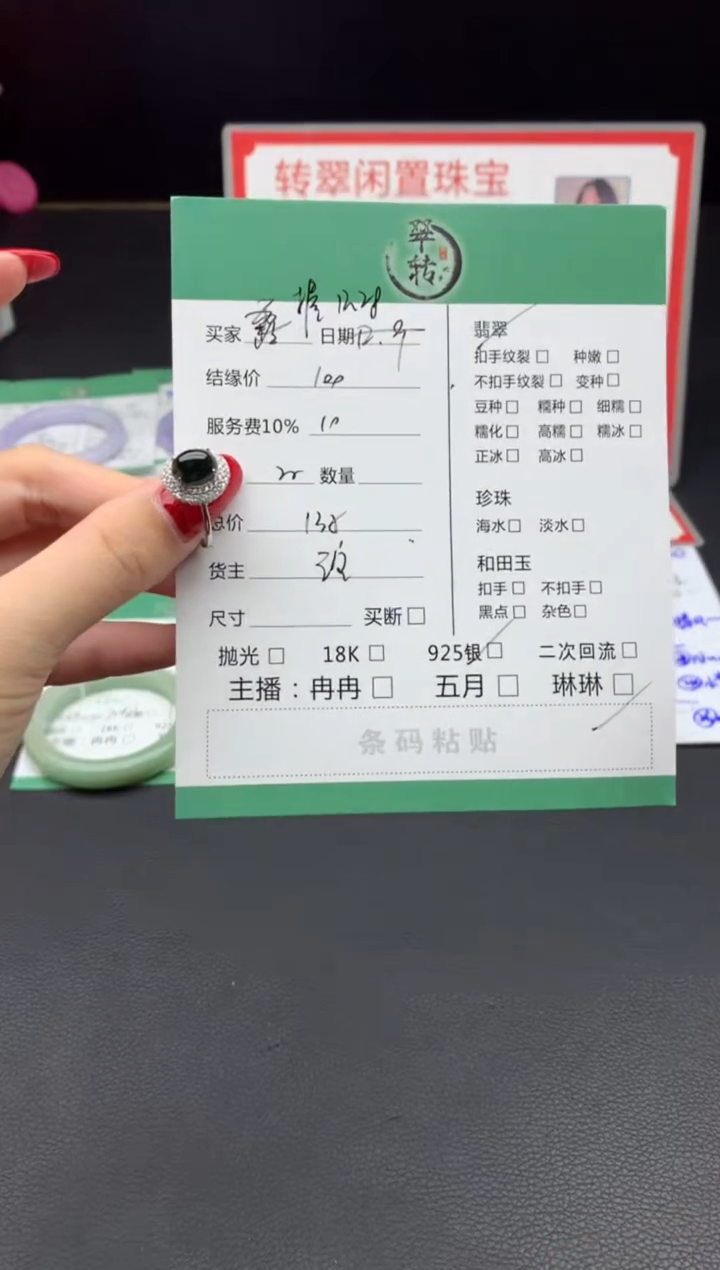 转翠闲置珠宝
翠
转
买家 日期12.9
12.28
结缘价 100
服务费10% 10
数量
总价
货主
尺寸 买断□
翡翠
扣手纹裂□ 种嫩□
不扣手纹裂□ 变种□
豆种□ 糯种□ 细糯□
糯化□ 高糯□ 糯冰□
正冰□ 高冰□
珍珠
海水□ 淡水□
和田玉
扣手□ 不扣手□
黑点□ 杂色□
抛光□ 18K□ 925银□ 二次回流□
主播：冉冉□ 五月□ 琳琳□
条码粘贴